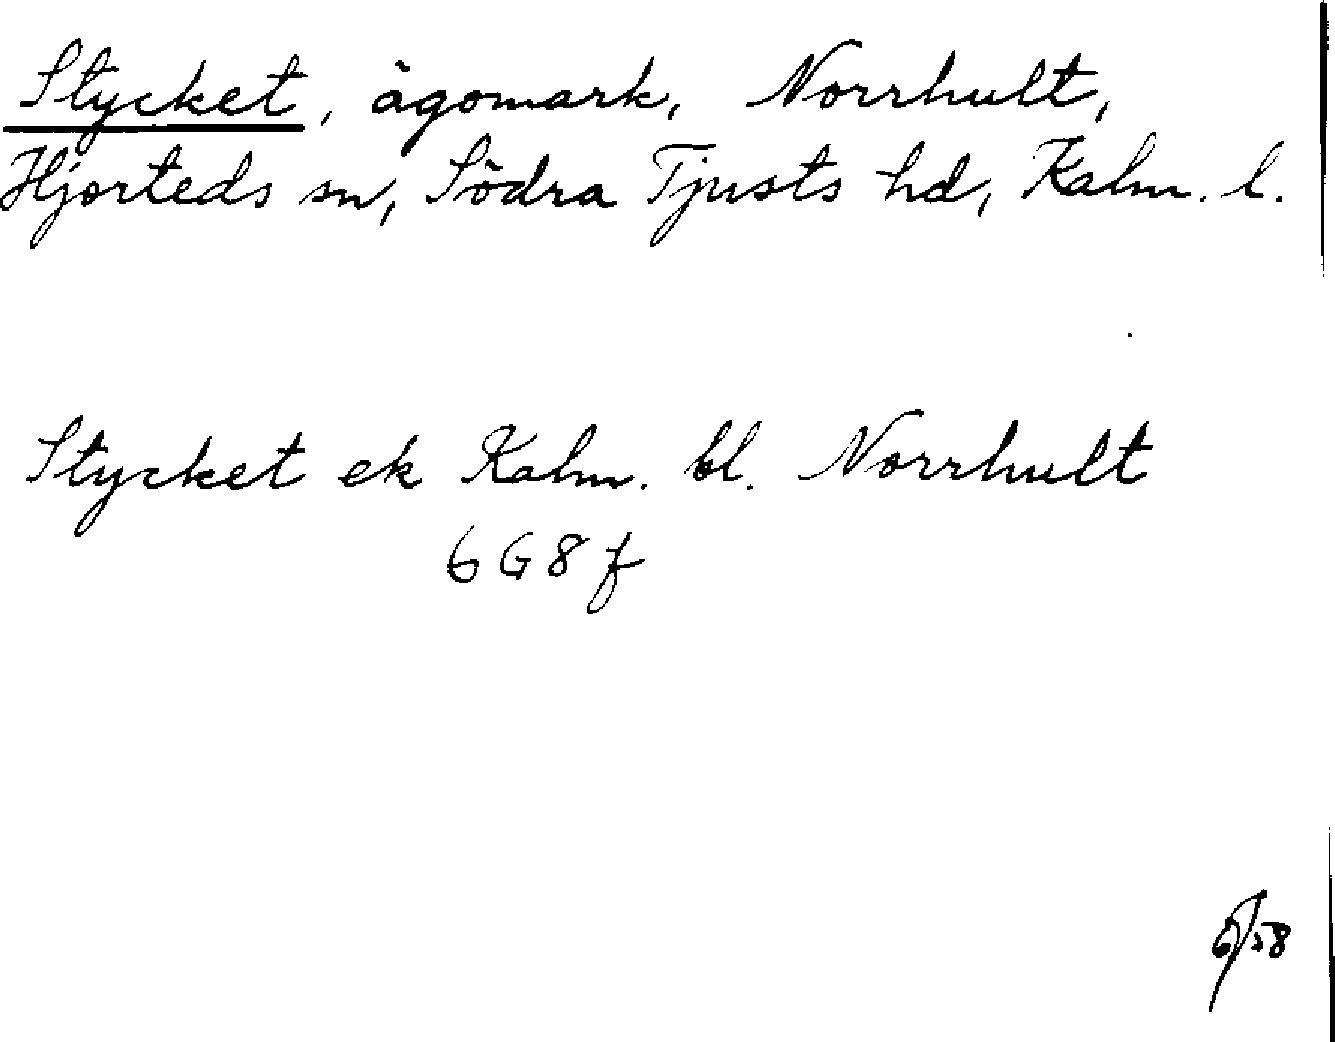 Stycket, ägomark, Norrhult,
Hjorteds sn, Södra Tjusts hd, Kalm. l.
Stycket ek Kalm. bl. Norrhult
6G8f